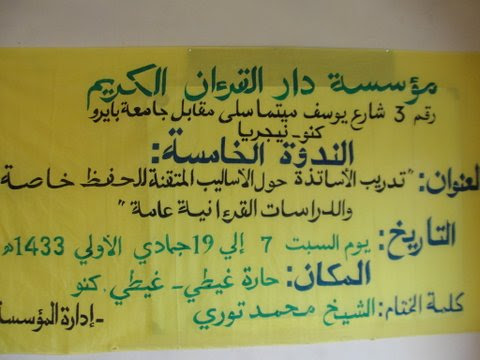 مؤسسة دار القرءان الكريم
رقم 3 شارع يوسف ميتما سلى مقابل جامعة بايرو
كنو - نيجريا
الندوة الخامسة:
العنوان: "تدريب الأساتذة حول الأساليب المتقنة للحفظ خاصة
والدراسات القرءانية عامة"
التاريخ: يوم السبت 7 إلي 19 جبادي الأولي 1433ه
المكان: حارة غيطي - غيطي. كنو
كلمة الختام: الشيخ محمد توري
- إدارة المؤسسة